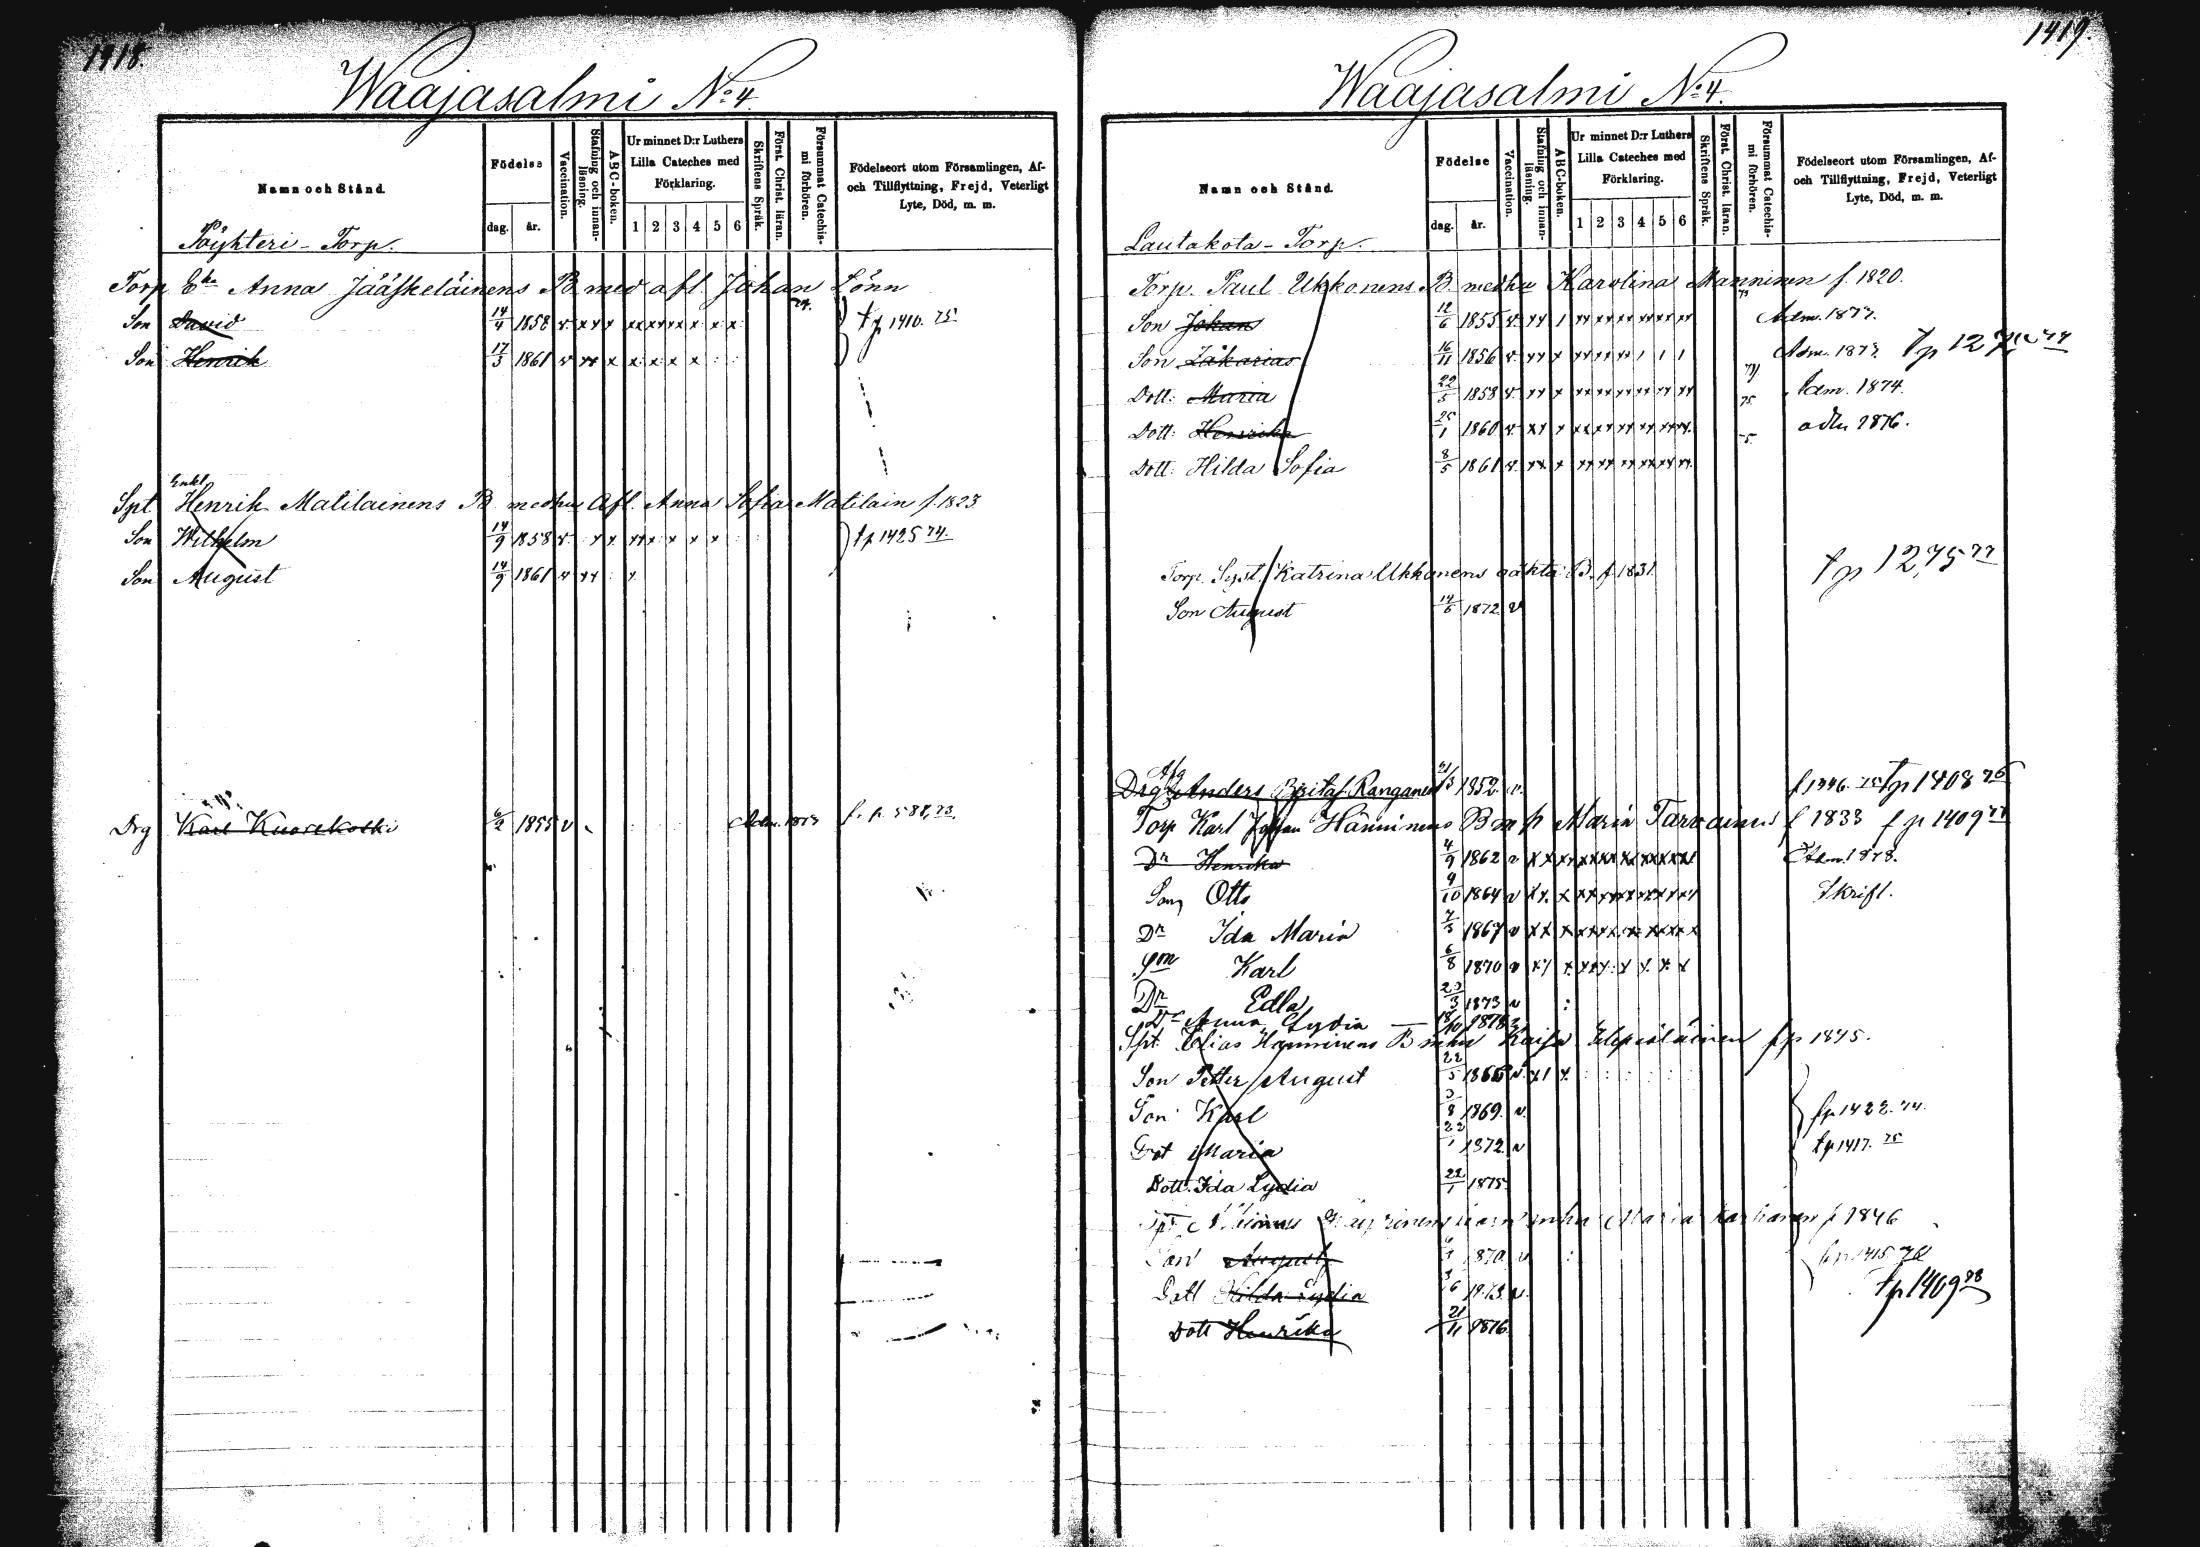 1418.
Waajasalmi No 4.
Namn och Stånd.
Födelse
dag. år.
Vaccination.
Stafning och innanläsning.
ABC-boken.
Ur minnet D:r Luthers Lilla Cateches med Förklaring.
1 2 3 4 5 6
Skriftens Språk.
Först. Christ. läran.
Försummat Catechismi förhören.
Födelseort utom Församlingen, Af- och Tillflyttning, Frejd, Veterligt Lyte, Död, m. m.
Pöyhteri-Torp.
Torp Eka Anna Jääskeläinens B med afl. Johan Lönn
Son David 14/4 1858 fp 1410. 75
Son Henrik 17/3 1861
Enkl
Spt Henrik Matilainens B medhu Afl. Anna Sofia Matilain f. 1823
Son Wilhelm 14/9 1858 fp 1425 74.
Son August 14/9 1861
Drg Karl Kuosekoski 6/2 1855 v Adm. 1873 f. p. 588, 73.
1419.
Waajasalmi No 4.
Namn och Stånd.
Födelse
dag. år.
Vaccination.
Stafning och innanläsning.
ABC-boken.
Ur minnet D:r Luthers Lilla Cateches med Förklaring.
1 2 3 4 5 6
Skriftens Språk.
Först. Christ. läran.
Försummat Catechismi förhören.
Födelseort utom Församlingen, Af- och Tillflyttning, Frejd, Veterligt Lyte, Död, m. m.
Lautakota-Torp.
Torp. Paul Ukkonens B. medhu Karolina Manninen f. 1820.
Son Johan 12/6 1855 Adm. 1877.
Son Zakarias 16/11 1856 Adm. 1873
Dott: Maria 22/5 1858 Adm. 1874.
Dott: Henrika 25/1 1860 adm 1876.
Dott: Hilda Sofia 8/5 1861
Torp. Syst. Katrina Ukkonens oäkta B. f. 1831. fp 1275 77
Son August 14/6 1872 v
Drg Anders Brita f. Ranganen 1852 v. fp 1408 76
Torp Karl Johan Hänninens B m h Maria Tarvainen f 1833 f p 1409
Dr Henrika 4/9 1862 v Adm. 1878.
Son Otto 9/10 1864 v Skrift.
Dr Ida Maria 1867 v
Son Karl 6/8 1870 v
Dr Edla 23/3 1873 v
Dr Anna Lydia 18/10 1878
Spt. Elias Hänninens B mhu Kaisa
Son Petter August 22/5 1866 v
Son Karl 3/8 1869. v. fp 1422. 74.
Dot Maria 22/1 1872 v fp 1417. 75
Dott. Ida Lydia 22/1 1875
Maria f 1846
Son August 1870 v
Dott Hilda Lydia 1873 v. fp 1409 78
Dott Henrika 21/11 1876